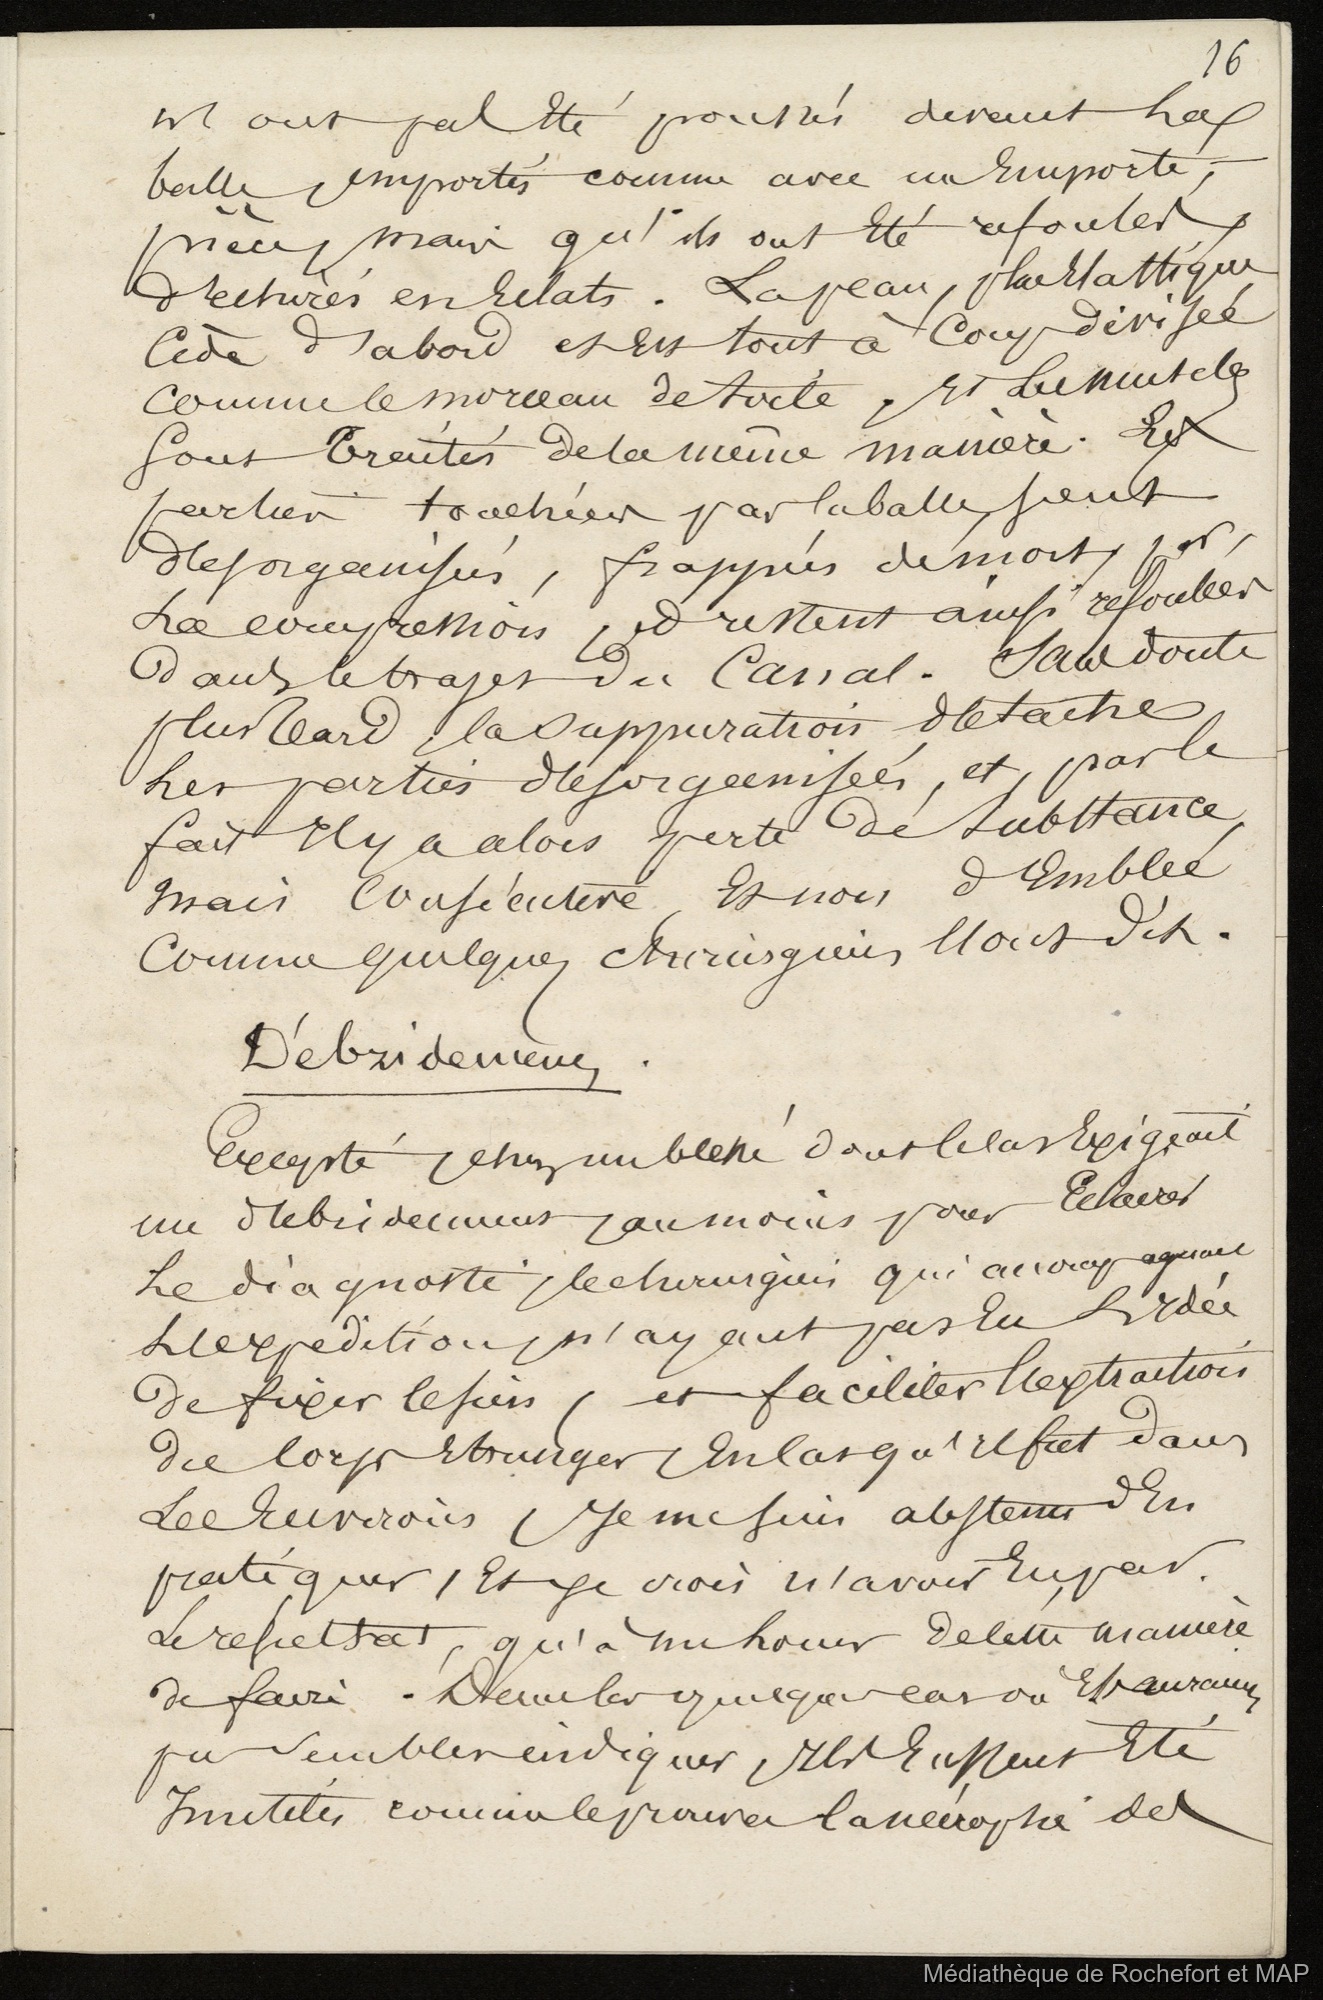 16
n'ont pas été poussés devant la
balle, emportés comme avec un Emporte-
pièce, mais qu'ils ont été refoulés,
déchirés en Eclats. La peau, plus Elastique
Cède d'abord et Est tout à Coup divisée
comme le morceau de toile, et Les muscles
sont traités de la même manière. Les
parties touchées par la balle, sont
désorganisées, frappées de mort, par,
La compression, et restent ainsi refoulées
dans le trajet du Canal. Sans doute
plus tard, la suppuration détache
Les parties désorganisées, et, par le
fait Il y a alors perte de Substance,
mais Consécutive, Et non d'Emblée
Comme quelques chirurgiens l'ont dit.
Débridement.
Excepté, chez un blessé dont le cas Exigeait
un débridement, au moins pour Eclairer
Le diagnostic, le chirurgien qui accompagnait
L'expédition, n'ayant pas Eu L'idée
de fixer le sien, et faciliter l'extraction
du Corps Etranger, En cas qu'il fut dans
Les Environs, Je me suis abstenu d'En
pratiquer, Et je crois n'avoir Eu par
Le résultat, qu'à me louer de cette manière
de faire. Dans les quelques cas où Ils auraient
pu sembler indiqués, Ils Eussent Eté
Inutiles comme le prouve la nécropsie des
Médiathèque de Rochefort et MAP